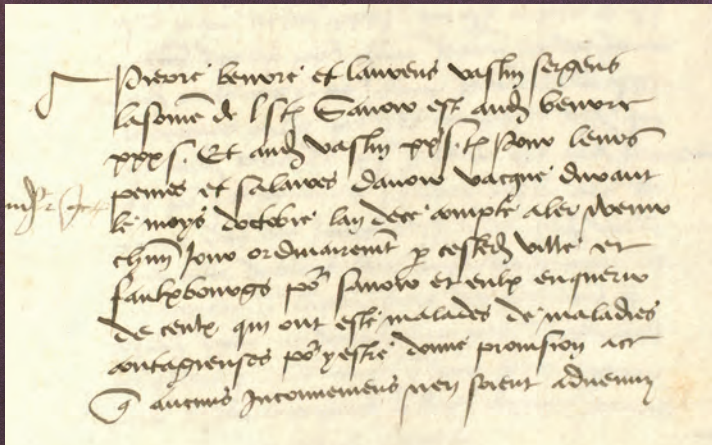 Pierre berore et laurens vaslin sergens
la some de l s t Savoir est aud berore
xxx s. Et aud vaslin xx s. t Pour leurs
peines et salaires davoir vacque durant
le moys doctobre lan de ce compte aler venir
chun Jour ordinairemt p cested ville et
faulxbourgs po savoir et eulx enquerir
de ceulx qui ont este malades de maladies
contagieuses po y estre donne provision a ce
q aucuns Inconveniens nen soient advenuz